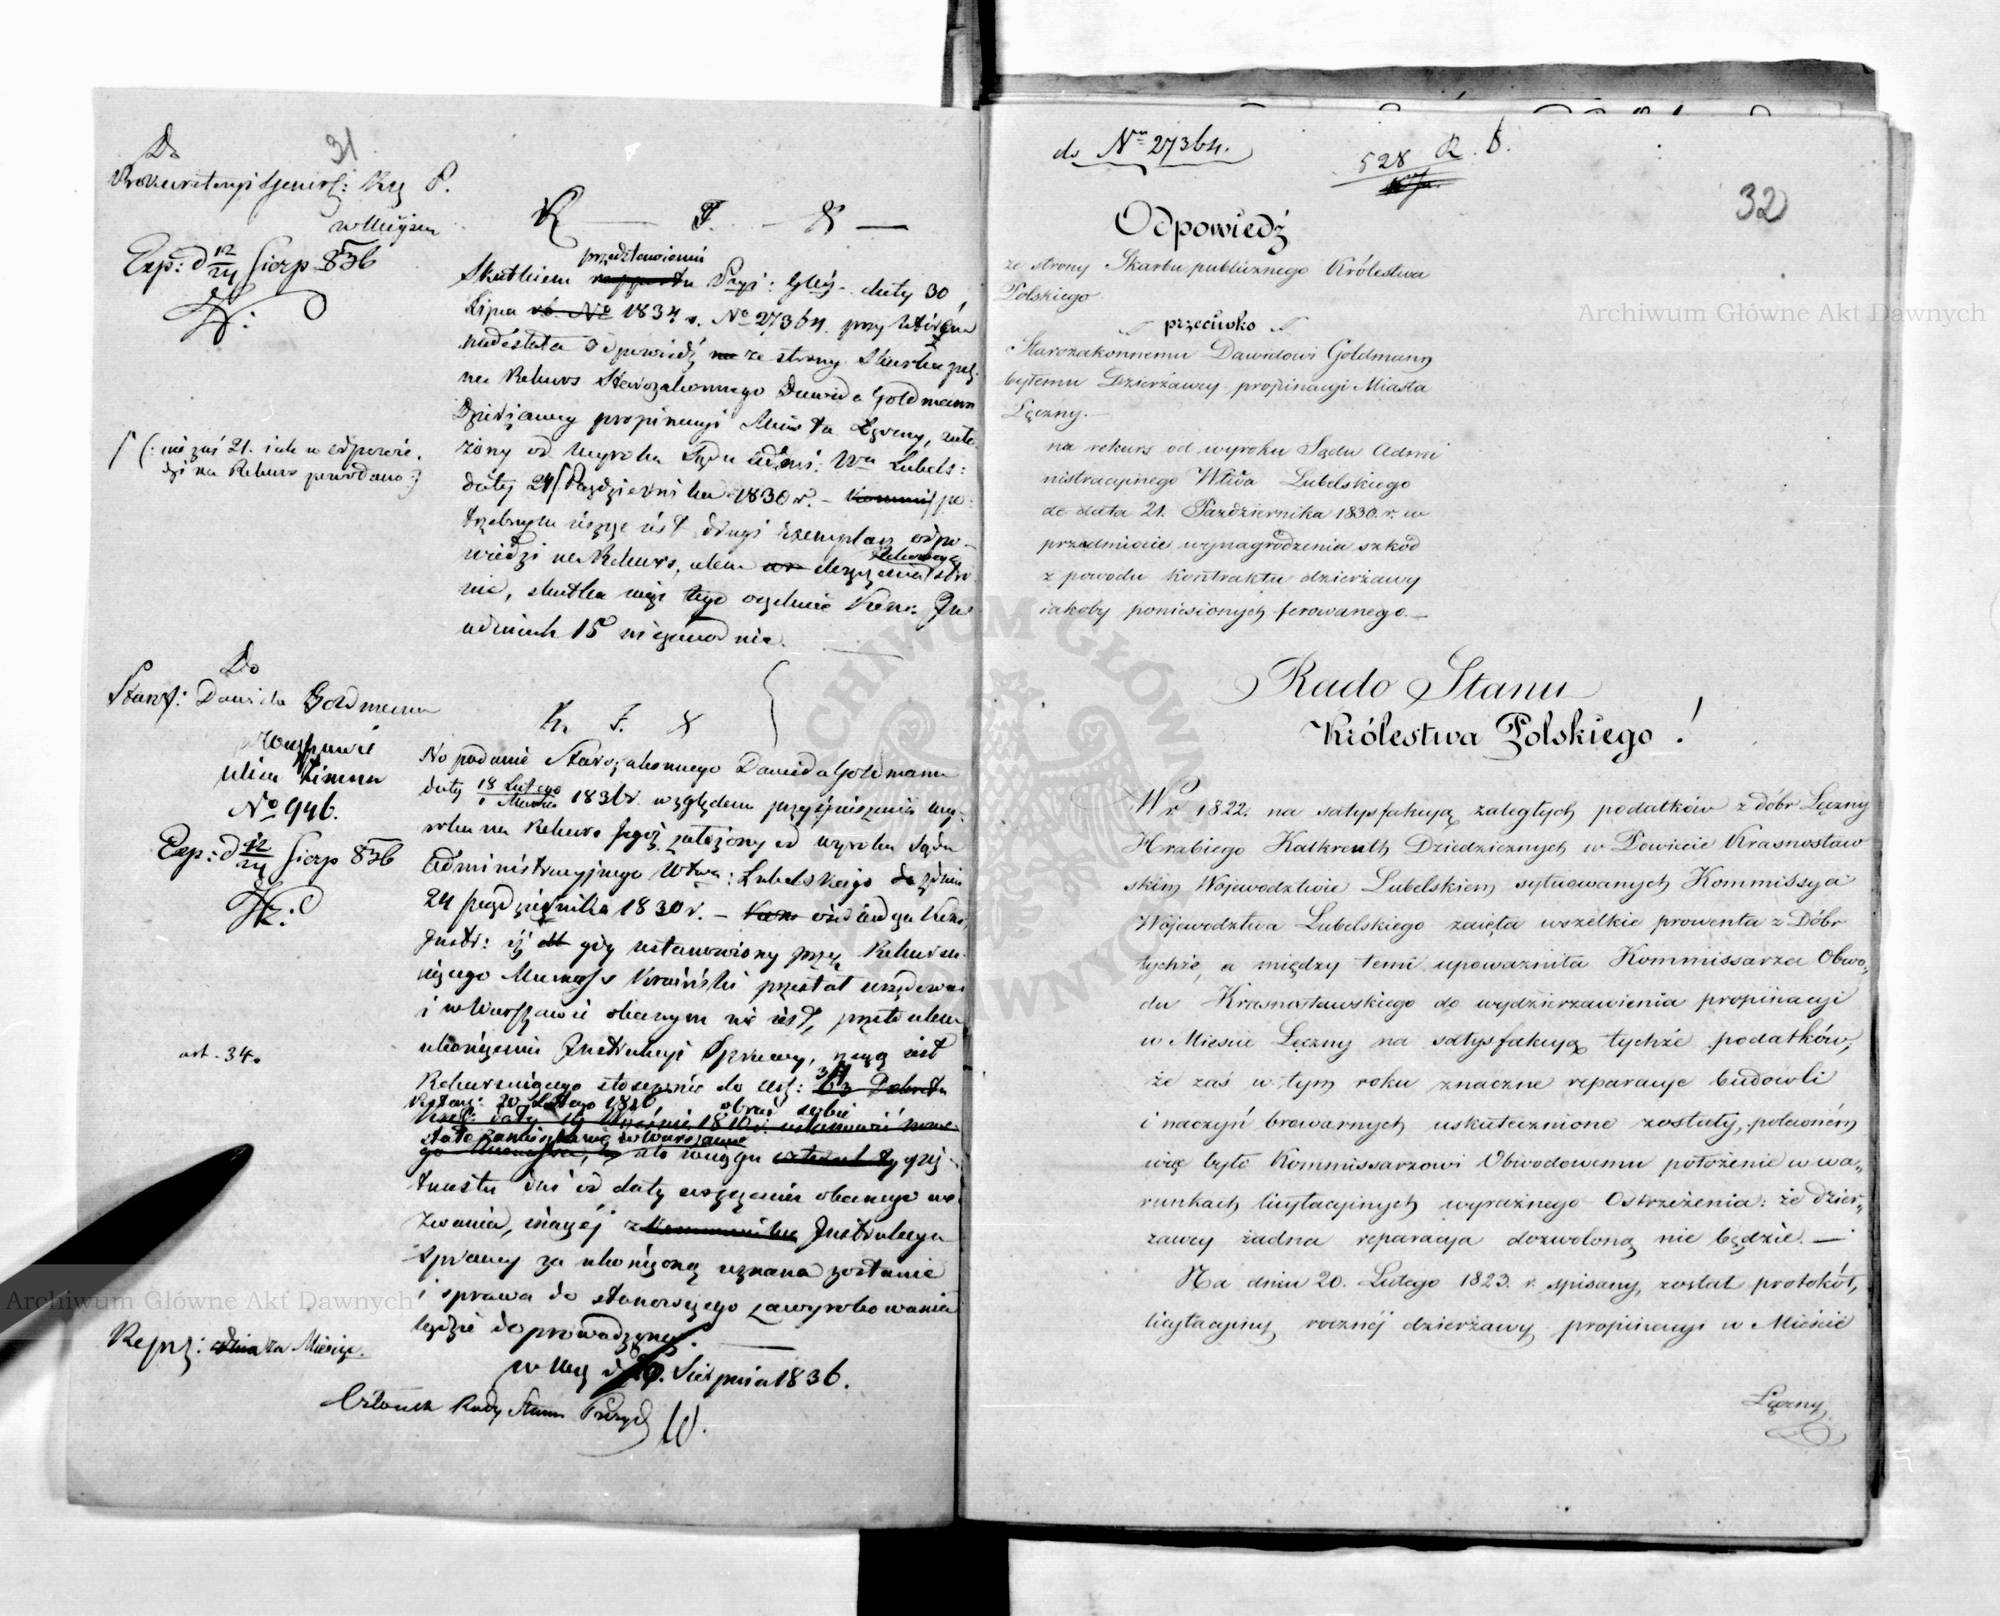 31
Do
Prokuratoryi Jeneral: Kr P.
w Miejscu
Exp: d 12/24 Sierp 836
K. T. S.
przedstawienia
Skutkiem rapportu Prgi: Glnej. daty 30
Lipca 1834 r. No 27364. przy którém
nadesłała odpowiedź na ze strony Skarbu pub:
na Rekurs Starozakonnego Dawida Goldmann
Dzierżawcy propinacyi Miasta Łęczny, zało-
żony od Wyroku Sądu Admi: Wa Lubels:
daty 24 Października 1830 r. – po-
trzebnym jeszcze jest drugi exemplarz odpo-
wiedzi na Rekurs, celem doręczenia stro-
nie, skutku więc tego oczekuje
w dniach 15 niezawodnie.
(: nie zaś 21. jak w odpowie-
dzi na Rekurs powołano :)
Do
Starz: Dawida Goldmann
w Warszawie
ulica Zimna
No 946.
Exp: d 12/24 Sierp 836
K. T. S
Na podanie Starozakonnego Dawida Goldmann
daty 18 Lutego/1 Marca 1836 r. względem przyspieszenia wy-
roku na Rekurs Jego założony od wyroku Sądu
Administracyjnego Wtwa: Lubelskiego z dnia
24 Października 1830 r. –
Instr: iż gdy ustanowiony przez Rekursu-
jącego Mecenas Kraiński przestał urzędować
i w Warszawie obecnym nie jest, przeto celem
ukończenia Instrukcyi Sprawy, wzywa
Rekursującego stosownie do art: 34
art. 34.
Postan: 20 Lutego 1816 obrał sobie
stałe zamieszkanie w Warszawie
w ciągu
trzestu dni od daty doręczenia obecnego we-
zwania, inaczéj Instrukcya
Sprawy za ukończoną uznana zostanie
i sprawa do stanowczego zawyrokowania
będzie doprowadzoną.
w Wwie d Sierpnia 1836.
Repr: za Miesiąc.
Członek Rady Stanu Prezyd
do Nru 27364.
528 R. S.
32
Odpowiedź
ze strony Skarbu publicznego Królestwa
Polskiego
przeciwko
Starozakonnemu Dawidowi Goldmann
byłemu Dzierżawcy propinacyi Miasta
Łęczny. —
na rekurs od wyroku Sądu Admi
nistracyjnego Wtwa Lubelskiego
de data 21. Października 1830. r. w
przedmiocie wynagrodzenia szkód
z powodu kontraktu dzierżawy
jakoby poniesionych ferowanego. —
Rado Stanu
Królestwa Polskiego!
W r. 1822. na satysfakcyą zaległych podatków z dóbr Łęczny
Hrabiego Kalkreuth Dziedzicznych w Powiecie Krasnostaw
skim Województwie Lubelskiem sytuowanych Kommissya
Województwa Lubelskiego zaięła wszelkie prowenta z Dóbr
tychże, a między temi upoważniła Kommissarza Obwo„
du Krasnostawskiego do wydzierżawienia propinacyi
w Mieście Łęczny na satysfakcyą tychże podatków,
że zaś w tym roku znaczne reparacye budowli
i naczyń browarnych uskutecznione zostały, poleconém
więc było Kommissarzowi Obwodowemu położenie w wa„
runkach licytacyjnych wyraźnego Ostrzeżenia: że dzier„
żawcy żadna reparacja dozwoloną nie będzie. —
Na dniu 20. Lutego 1823. r. spisany został protokół,
licytacyjny roczněj dzierżawy propinacyi w Mieście
Łęczny
Archiwum Główne Akt Dawnych
Archiwum Główne Akt Dawnych